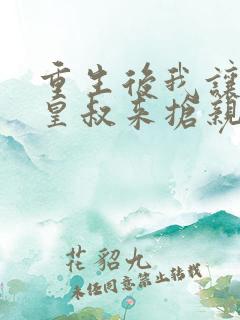 重生後我讓
皇叔来搶親
花貂九
未經同意禁止轉載